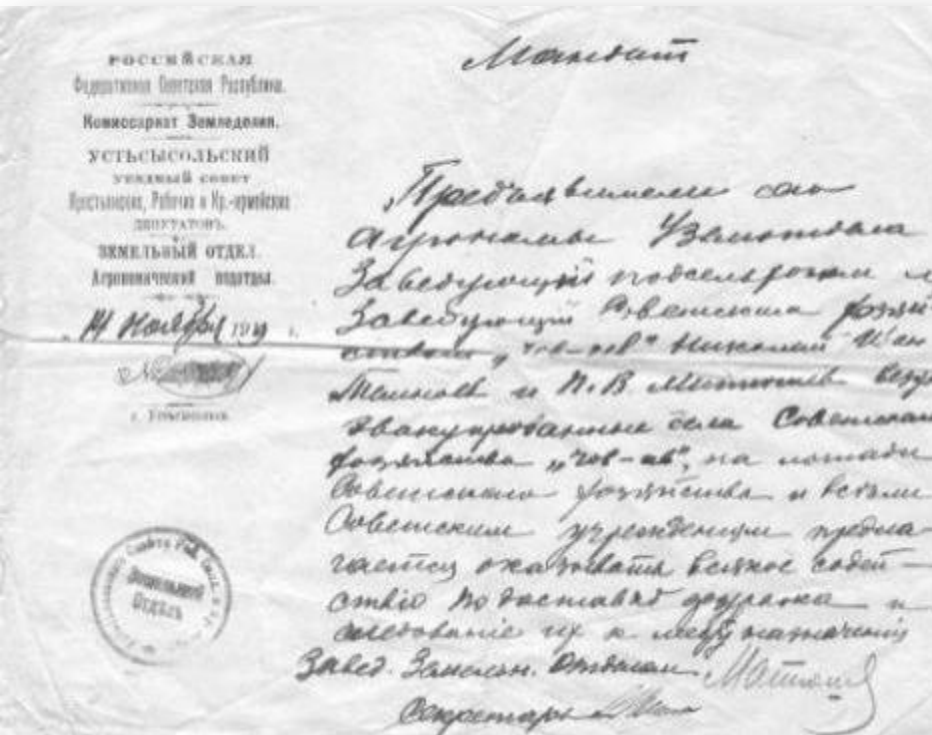 РОССІЙСКАЯ
Федеративная Советская Республика.
Комиссаріат Земледелия.
УСТЬСЫСОЛЬСКИЙ
УЕЗДНЫЙ СОВЕТ
Крестьянских, Рабочих и Кр.-армейских
ДЕПУТАТОВЪ.
ЗЕМЕЛЬНЫЙ ОТДЕЛ.
Агрономический подотдел.
14 Ноября 1919 г.
№
г. Устьсысольск
Мандат
Предъявители сего
агрономы Уземотдела
Заведующий подсельхозом и
Заведующий Советским хозяй-
ством „Чов-ью" Николай
и П. В. Матюшев везут
эвакуированные Советскаго
хозяйства „Чов-ью", на лошади
Советскаго хозяйства и всем
Советским учреждениям предла-
гается оказывать всякое содей-
ствіе по доставке фуража и
следованіе их к месту назначения
Завед. Земельн. Отделом
Секретарь
Земельный
Отделъ